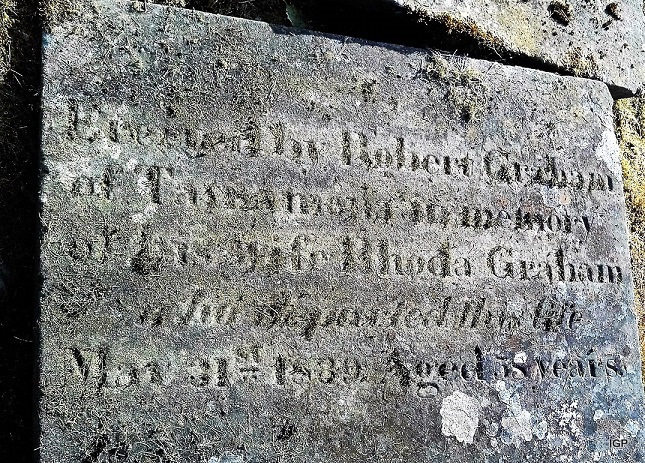 Erected by Robert Graham
of in memory
of his wife Rhoda Graham
who departed this life
May 31st 1839 Aged 58 years
IGP